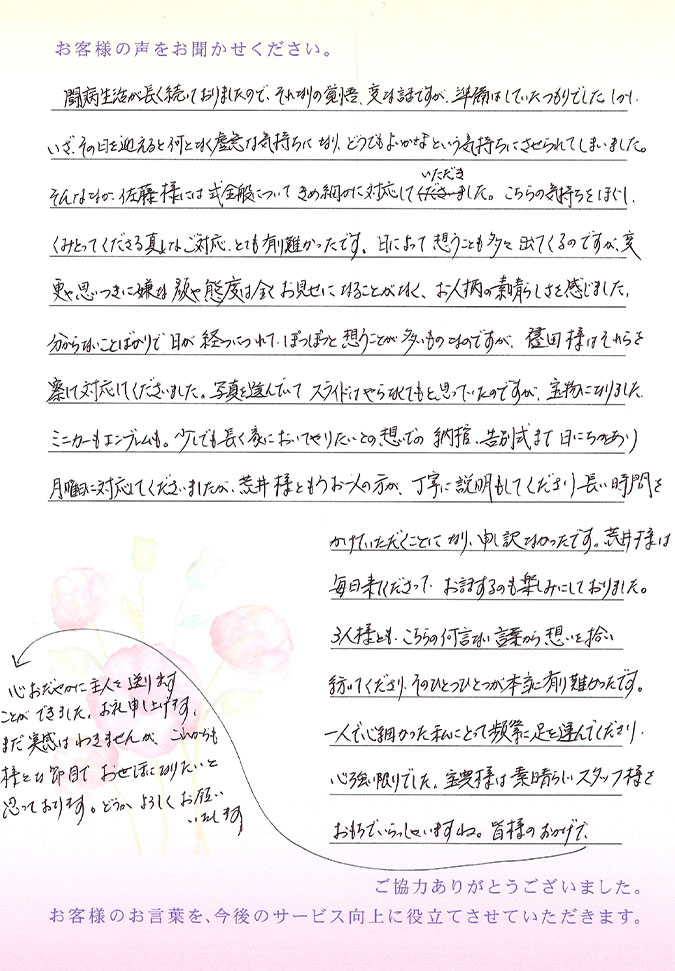 お客様の声をお聞かせください。
闘病生活が長く続いておりましたので、それなりの覚悟、変な話ですが、準備はしていたつもりでした。しかし、
いざ、その日を迎えると何となく虚無な気持ちになり、どうでもよいかなという気持ちにさせられてしまいました。
そんななか、佐藤様には式全般についてきめ細かに対応していただきました。こちらの気持ちをほぐし、
くみとってくださる真しなご対応、とても有り難かったです。日によって想うことも多々出てくるのですが、変
更や思いつきに嫌な顔や態度は全くお見せになることがなく、お人柄の素晴らしさを感じました。
分からないことばかりで日が経つにつれて、ぽつぽつと想うことが多いものなのですが、様はそれらを
察して対応してくださいました。写真を選んでいてスライドはやらなくてもと思っていたのですが、宝物になりました。
ミニカーもエンブレムも。少しでも長く家においてやりたいとの想いでの納棺、告別式まで日にちがあり
月曜日に対応してくださいましたが、荒井様ともうお一人の方が、丁寧に説明もしてくださり長い時間を
かけていただくことになり、申し訳なかったです。荒井様は
毎日来てくださって、お話するのも楽しみにしておりました。
3人様とも、こちらの何言ない言葉から想いを拾い
紡いでくださり、そのひとつひとつが本当に有り難かったです。
一人で心細かった私にとって頻繁に足を運んでくださり、
心強い限りでした。様は素晴らしいスタッフ様を
おもちでいらっしゃいますね。皆様のおかげで、
心おだやかに主人を送ります
ことができました。お礼申し上げます。
まだ実感はわきませんが、これからも
様々な節目でお世話になりたいと
思っております。どうか、よろしくお願い
いたします
ご協力ありがとうございました。
お客様のお言葉を、今後のサービス向上に役立てさせていただきます。